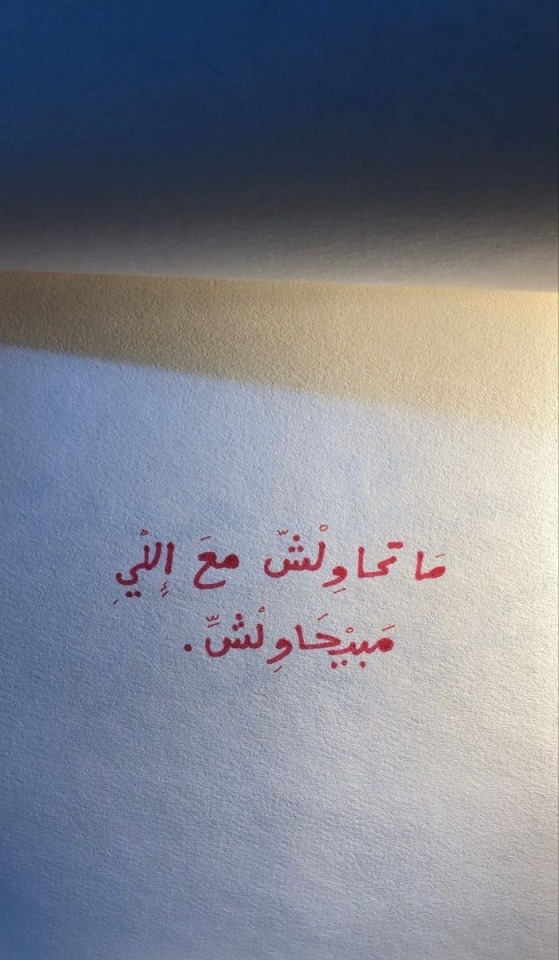 مَا تحاوِلْشّ معَ إِللْيِ
مَبيْحَاوِلْشِّ.